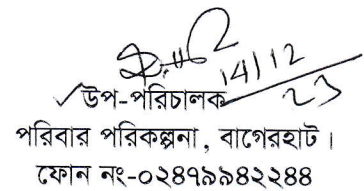 14/12
23
উপ-পরিচালক
পরিবার পরিকল্পনা, বাগেরহাট।
ফোন নং-০২৪৭৭৯৪২২৪৪